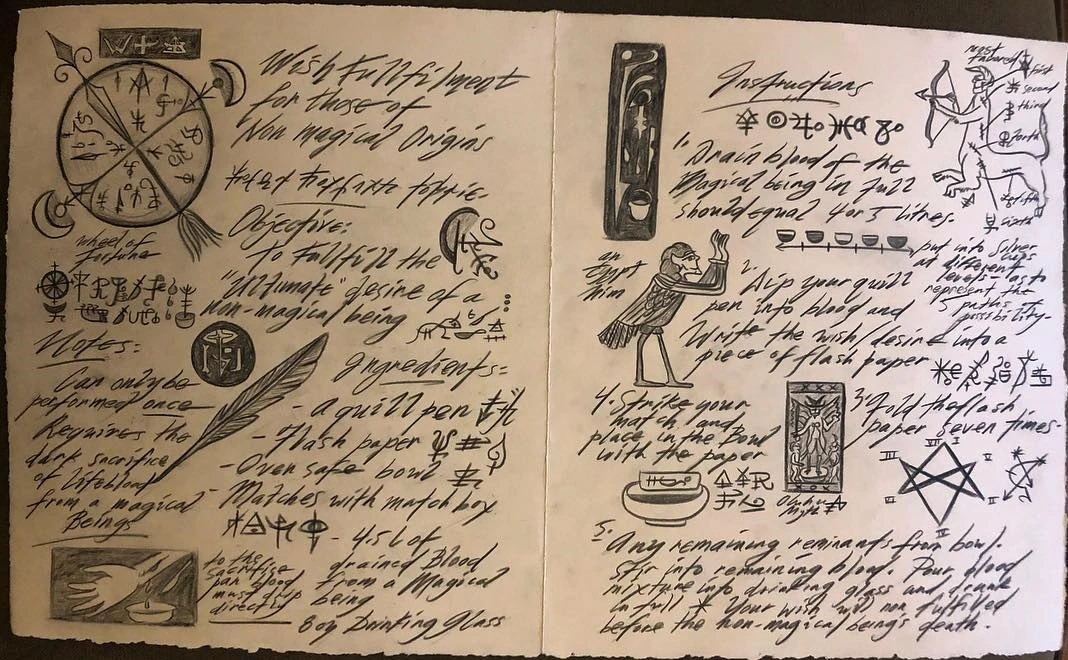 Wish Fullfilment
for those of
Non magical Origins
Objective:
To Fullfill the
"Ultimate" desire of a
non-magical being
wheel of
fortune
Notes:
Can only be
performed once
Requires the
dark sacrifice
of Lifeblood
from a magical
Beings
Ingredients:
- a quill pen
- Flash paper
- Oven safe bowl
- Matches with matchbox
- 4.5L of
drained Blood
from a Magical
being
Drinking Glass
to the
sacrifice
blood
must drip
directly
Instructions
1. Drain blood of the
Magical being in full
should equal 4 or 5 litres.
most
favored
first
second
third
forth
fifth
sixth
put into silver
cups
at different
levels - as to
represent the
5 paths of
possibility-
2. Dip your quill
pen into blood and
Write the wish/desire into a
piece of flash paper
3. Fold the flash
paper seven times-
I
II
III
V
VI
VII
4. Strike your
match and
place in the Bowl
with the paper
5. Any remaining reminants from bowl.
Stir into remaining blood. Pour blood
mixture into drinking glass and drink
in full * Your wish will non fulfilled
before the non-magical being's death.